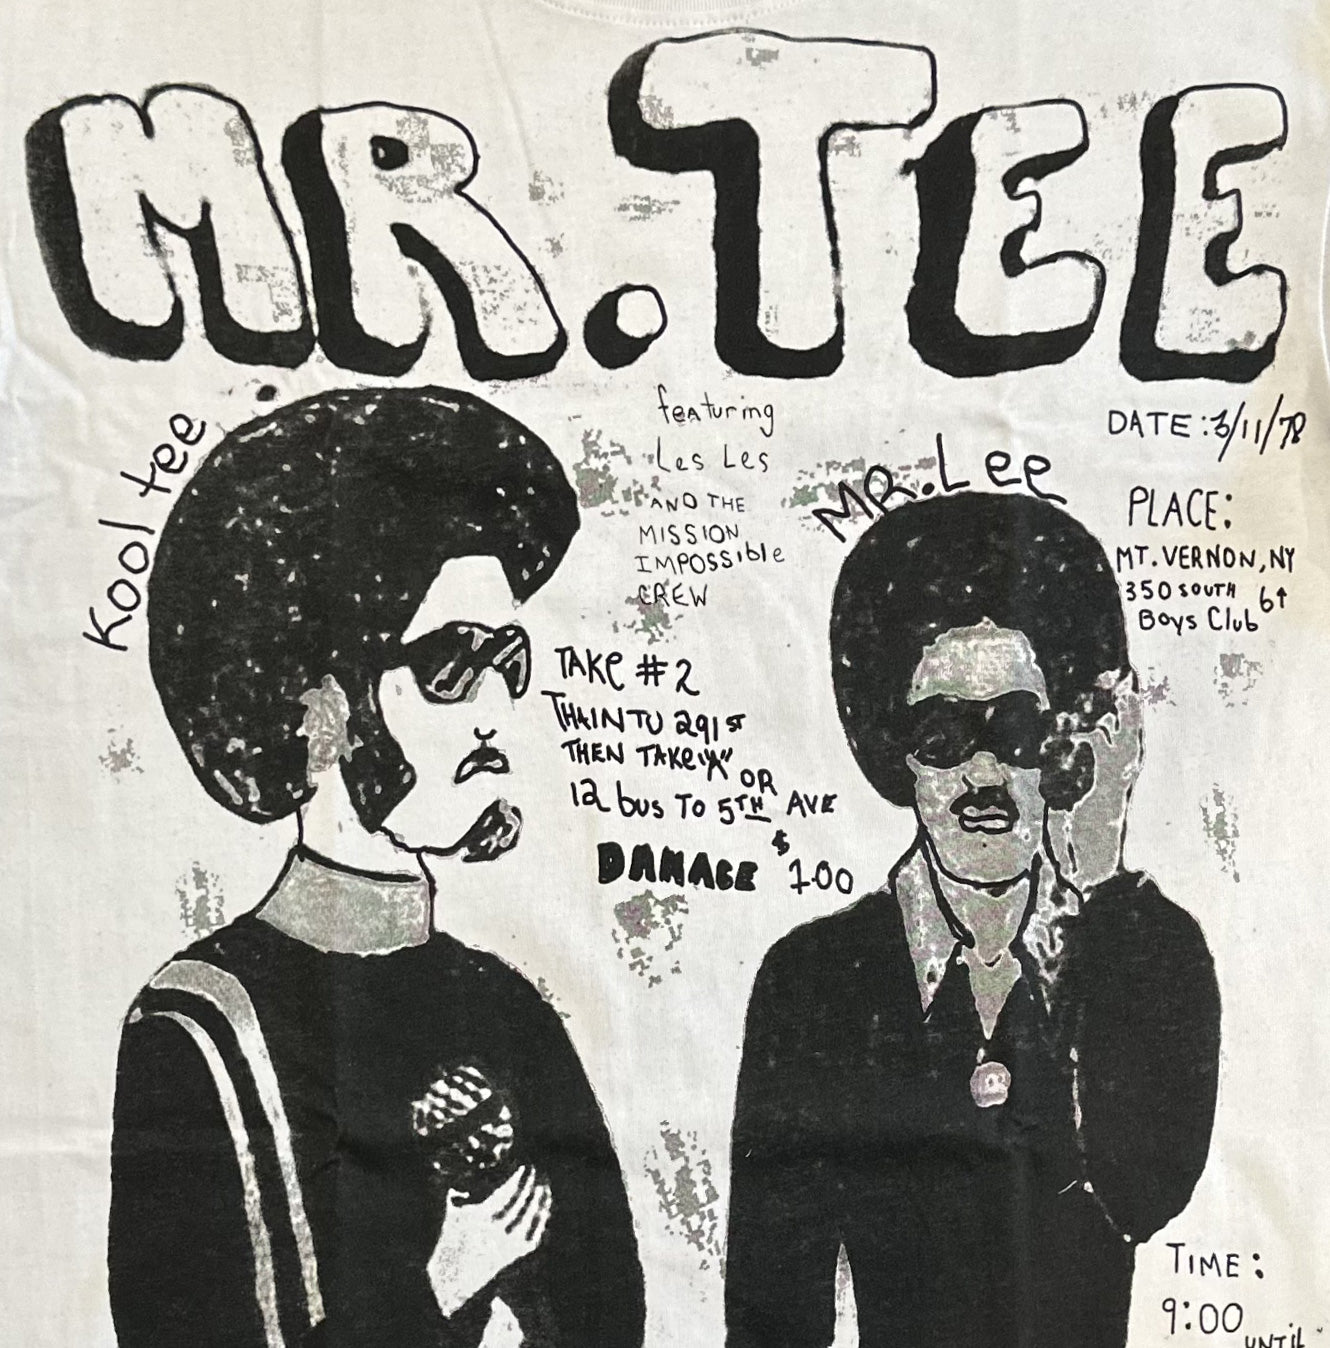 MR. TEE
Kool tee
featuring
Les Les
AND THE
MISSION
IMPOSSIble
CREW
MR. Lee
DATE: 3/11/78
PLACE:
MT. VERNON, NY
350 SOUTH 6t
Boys Club
TAKE # 2
THAIN TU 291 ST
THEN TAKE "A" OR
12 bus TO 5TH AVE
DAMAGE $1.00
TIME:
9:00
UNTIL